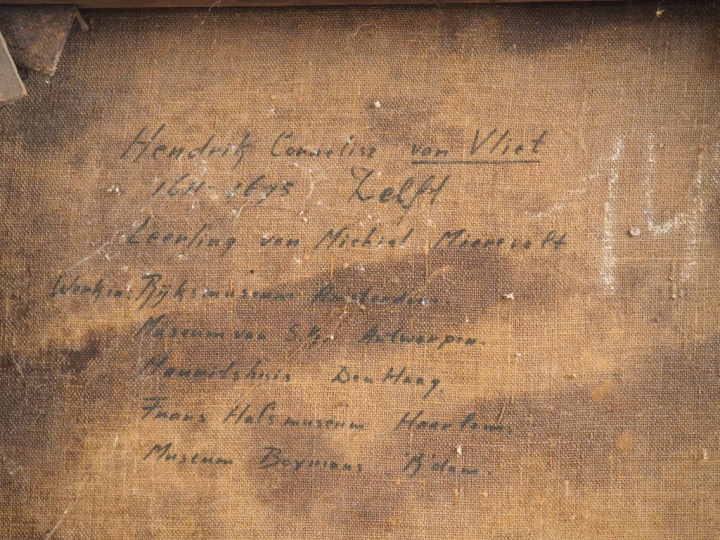 Hendrik Cornelisz van Vliet
1611-1675 Delft
Leerling van Michiel Mierevelt
14
Werken: Rijksmuseum Amsterdam.
Museum van S.K. Antwerpen.
Mauritshuis Den Haag.
Frans Hals museum Haarlem.
Museum Boymans R'dam.